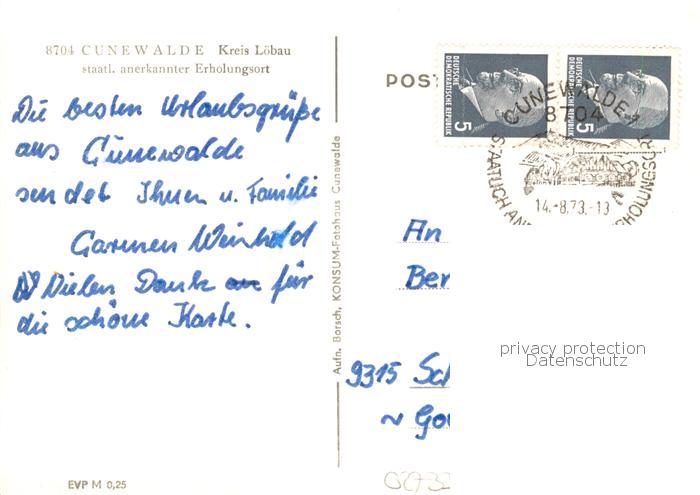 8704 CUNEWALDE Kreis Löbau
staatl. anerkannter Erholungsort
Die besten Urlaubsgrüße
aus Cunewalde
sendet Ihnen u. Familie
Carmen Weinhold
Vielen Dank für
die schöne Karte.
EVP M 0,25
Aufn. Borsch, KONSUM-Fotohaus Cunewalde
POS
DEUTSCHE
DEMOKRATISCHE REPUBLIK
5
DEUTSCHE
DEMOKRATISCHE REPUBLIK
5
CUNEWALDE 1
8704
14.-8.73.-13
STAATLICH AN
HOLUNGSORT
An
Ber
9315 Sch
~ Go
privacy protection
Datenschutz